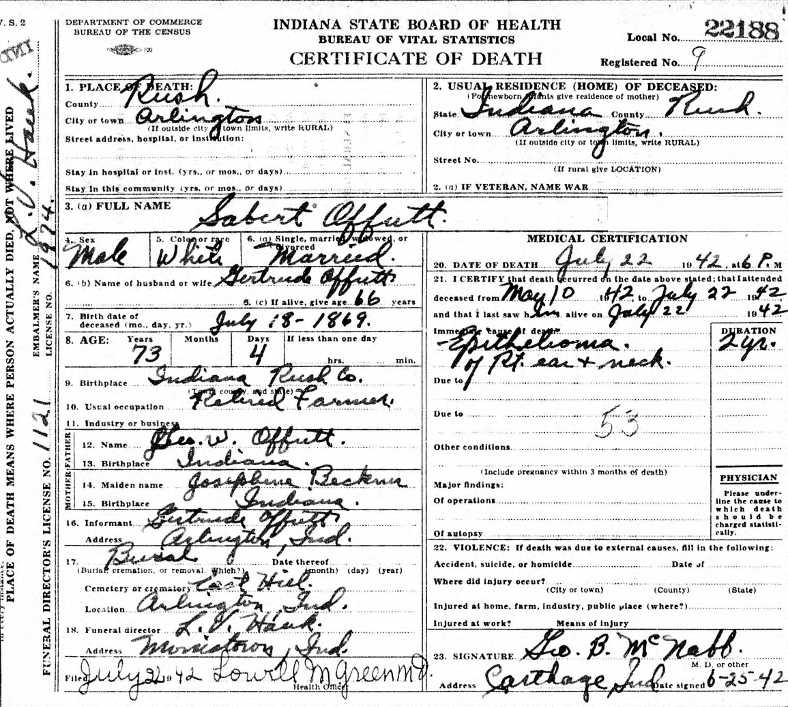 V. S. 2
DEPARTMENT OF COMMERCE
BUREAU OF THE CENSUS
INDIANA STATE BOARD OF HEALTH
BUREAU OF VITAL STATISTICS
CERTIFICATE OF DEATH
Local No. 22188
Registered No. 9
PLACE OF DEATH MEANS WHERE PERSON ACTUALLY DIED, NOT WHERE LIVED
EMBALMER'S NAME L. V. Hauk.
LICENSE NO. 1924.
FUNERAL DIRECTOR'S LICENSE NO. 1121
1. PLACE OF DEATH:
County Rush.
City or town Arlington
(If outside city or town limits, write RURAL)
Street address, hospital, or institution:
Stay in hospital or inst. (yrs., or mos., or days)
Stay in this community (yrs., or mos., or days)
2. USUAL RESIDENCE (HOME) OF DECEASED:
(For newborn infants give residence of mother)
State Indiana County Rush.
City or town Arlington.
(If outside city or town limits, write RURAL)
Street No.
(If rural give LOCATION)
2. (a) IF VETERAN, NAME WAR
3. (a) FULL NAME Sabert Offutt.
4. Sex Male
5. Color or race White
6. (a) Single, married, widowed, or divorced Married.
6. (b) Name of husband or wife Gertrude Offutt
6. (c) If alive, give age 66 years
7. Birth date of
deceased (mo., day, yr.) July 18-1869.
8. AGE: Years 73 Months Days 4 If less than one day hrs. min.
9. Birthplace Indiana Rush Co.
(Town, county, and state)
10. Usual occupation Retired Farmer.
11. Industry or business
FATHER
12. Name Geo. W. Offutt.
13. Birthplace Indiana.
MOTHER
14. Maiden name Josephine
15. Birthplace Indiana.
16. Informant Gertrude Offutt.
Address Arlington, Ind.
17. Burial Date thereof
(Burial, cremation, or removal. Which?) (month) (day) (year)
Cemetery or crematory East Hill
Location Arlington, Ind.
18. Funeral director L. V. Hauk.
Address Morristown, Ind.
Filed July 1942 Lowell M Green M.D.
Health Officer
MEDICAL CERTIFICATION
20. DATE OF DEATH July 22 1942, at 6 P. M
21. I CERTIFY that death occurred on the date above stated; that I attended
deceased from May 10 1942, to July 22 1942
and that I last saw him alive on July 22 1942
Immediate cause of death
Epithelioma.
of Rt. ear + neck.
DURATION
2 yr.
Due to
Due to
53
Other conditions
(Include pregnancy within 3 months of death)
Major findings:
Of operations
Of autopsy
PHYSICIAN
Please under-
line the cause to
which death
should be
charged statisti-
cally.
22. VIOLENCE: If death was due to external causes, fill in the following:
Accident, suicide, or homicide Date of
Where did injury occur?
(City or town) (County) (State)
Injured at home, farm, industry, public place (where?)
Injured at work? Means of injury
23. SIGNATURE Geo. B. McNabb.
M. D. or other
Address Carthage, Ind Date signed 6-25-42